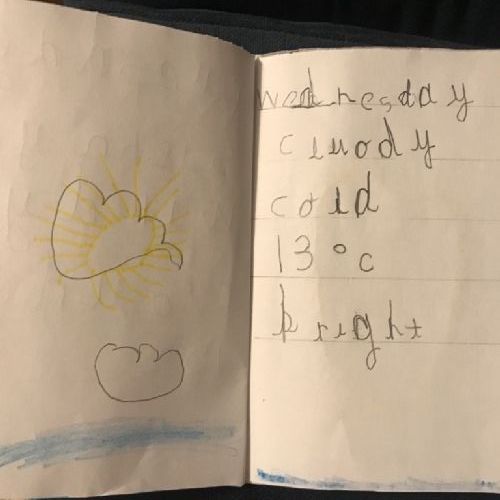 Wednesday
cluody
cold
13°c
bright